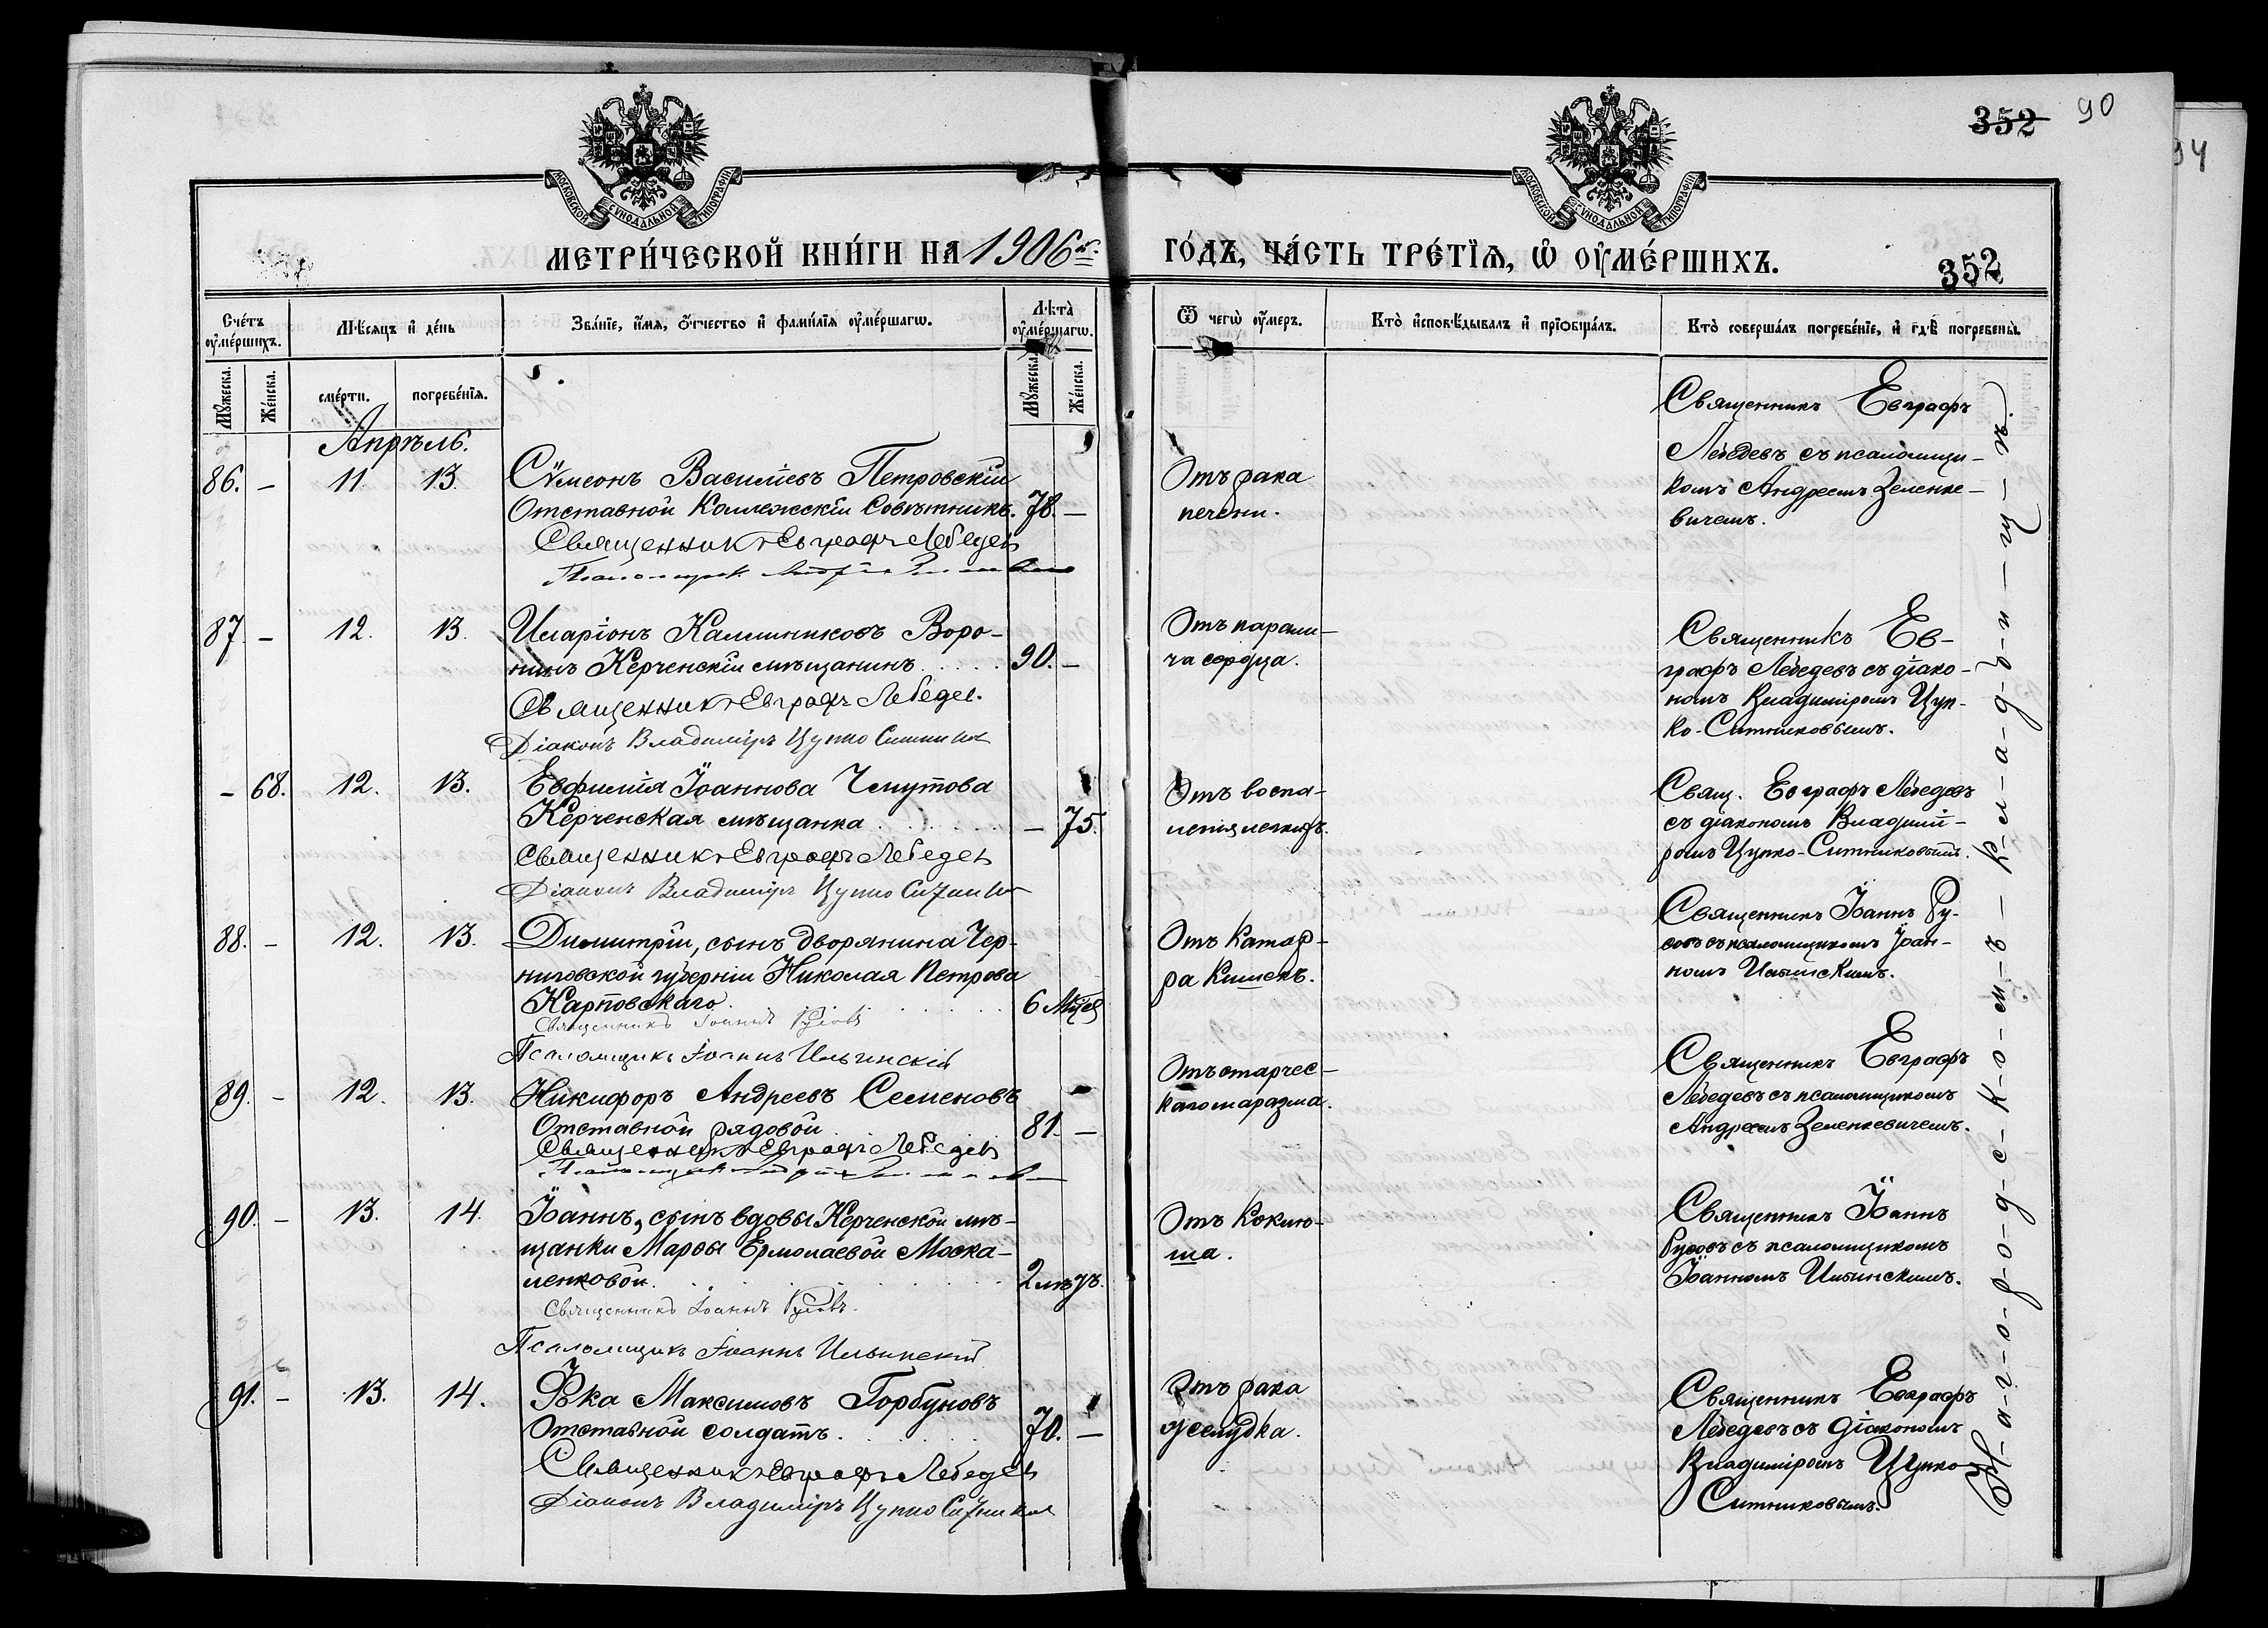 352 90
94
МОСКОВСКОЙ СУНОДАЛЬНОЙ ТИПОГРАФІИ
МОСКОВСКОЙ СУНОДАЛЬНОЙ ТИПОГРАФІИ
МЕТРИ́ЧЕСКОЙ КНИ́ГИ НА 1906й
ГО́ДЪ, ЧА́СТЬ ТРЕ́ТЇѦ, Ѡ҆ ОУ҆МЕ́РШИХЪ.
352
Сче́тъ оу҆ме́ршихъ.
Мѣ́сѧцъ и҆ де́нь
Зва́нїе, и҆́мѧ, ѻ҆́тчество и҆ фами́лїѧ оу҆ме́ршагѡ.
Лѣ́та оу҆ме́ршагѡ.
Ѿ чегѡ̀ оу҆́меръ.
Кто̀ и҆сповѣ́дывалъ и҆ прїѻбща́лъ.
Кто̀ соверша́лъ погребе́нїе, и҆ гдѣ̀ погребены̀.
Мꙋ́жеска.
Же́нска.
сме́рти.
погребе́нїѧ.
Мꙋ́жеска.
Же́нска.
Апрѣль.
86. – 11. 13. Сѵмеонъ Василіевъ Петровскій
Отставной Коллежскій Совѣтникъ. 78. –
Священникъ Евграфъ Лебедевъ
Отъ рака
печени.
Священникъ Евграфъ
Лебедевъ съ псаломщи-
комъ Андреемъ Зеленке-
вичемъ.
87. – 12. 13. Иларіонъ Калинниковъ Воро-
нинъ Керченскій мѣщанинъ. 90. –
Священникъ Евграфъ Лебедев.
Діаконъ Владиміръ Цупко Ситников
Отъ парали-
ча сердца.
Священникъ Ев-
графъ Лебедевъ съ діако-
номъ Владиміромъ Цуп-
ко-Ситниковымъ.
– 68. 12. 13. Евфимія Іоаннова Чмутова
Керченская мѣщанка – 75.
Священникъ Евграфъ Лебедевъ
Діаконъ Владиміръ Цупко Ситников
Отъ воспа-
ленія легкихъ.
Свящ. Евграфъ Лебедевъ
съ діакономъ Владимі-
ромъ Цупко-Ситниковымъ.
88. – 12. 13. Димитрій, сынъ дворянина Чер-
ниговской губерніи Николая Петрова
Карповскаго. 6 Мцев
Священникъ Іоаннъ Русовъ
Псаломщикъ Іоаннъ Ильинскій
Отъ катар-
ра кишекъ.
Священникъ Іоаннъ Ру-
совъ съ псаломщикомъ Іоан-
номъ Ильинскимъ.
89. – 12. 13. Никифоръ Андреевъ Семеновъ
Отставной рядовой 81. –
Священникъ Евграфъ Лебедевъ
Отъ старчес-
каго маразма.
Священникъ Евграфъ
Лебедевъ съ псаломщикомъ
Андреемъ Зеленкевичемъ.
90. – 13. 14. Іоаннъ, сынъ вдовы Керченской мѣ-
щанки Марѳы Ермолаевой Моска-
ленковой. 2 мѣсц.
Священникъ Іоаннъ Русовъ.
Псаломщикъ Іоаннъ Ильинскій
Отъ коклю-
ша.
Священникъ Іоаннъ
Русовъ съ псаломщикомъ
Іоанномъ Ильинскимъ.
91. – 13. 14. Ѳока Максимовъ Горбуновъ
Отставной солдатъ. 70. –
Священникъ Евграфъ Лебедевъ
Діаконъ Владиміръ Цупко Ситников
Отъ рака
желудка.
Священникъ Евграфъ
Лебедевъ съ діакономъ
Владиміромъ Цупко
Ситниковымъ.
На-г-о-р-о-д-с-к-о-м-ъ – к-л-а-д-б-и-щ-ѣ.